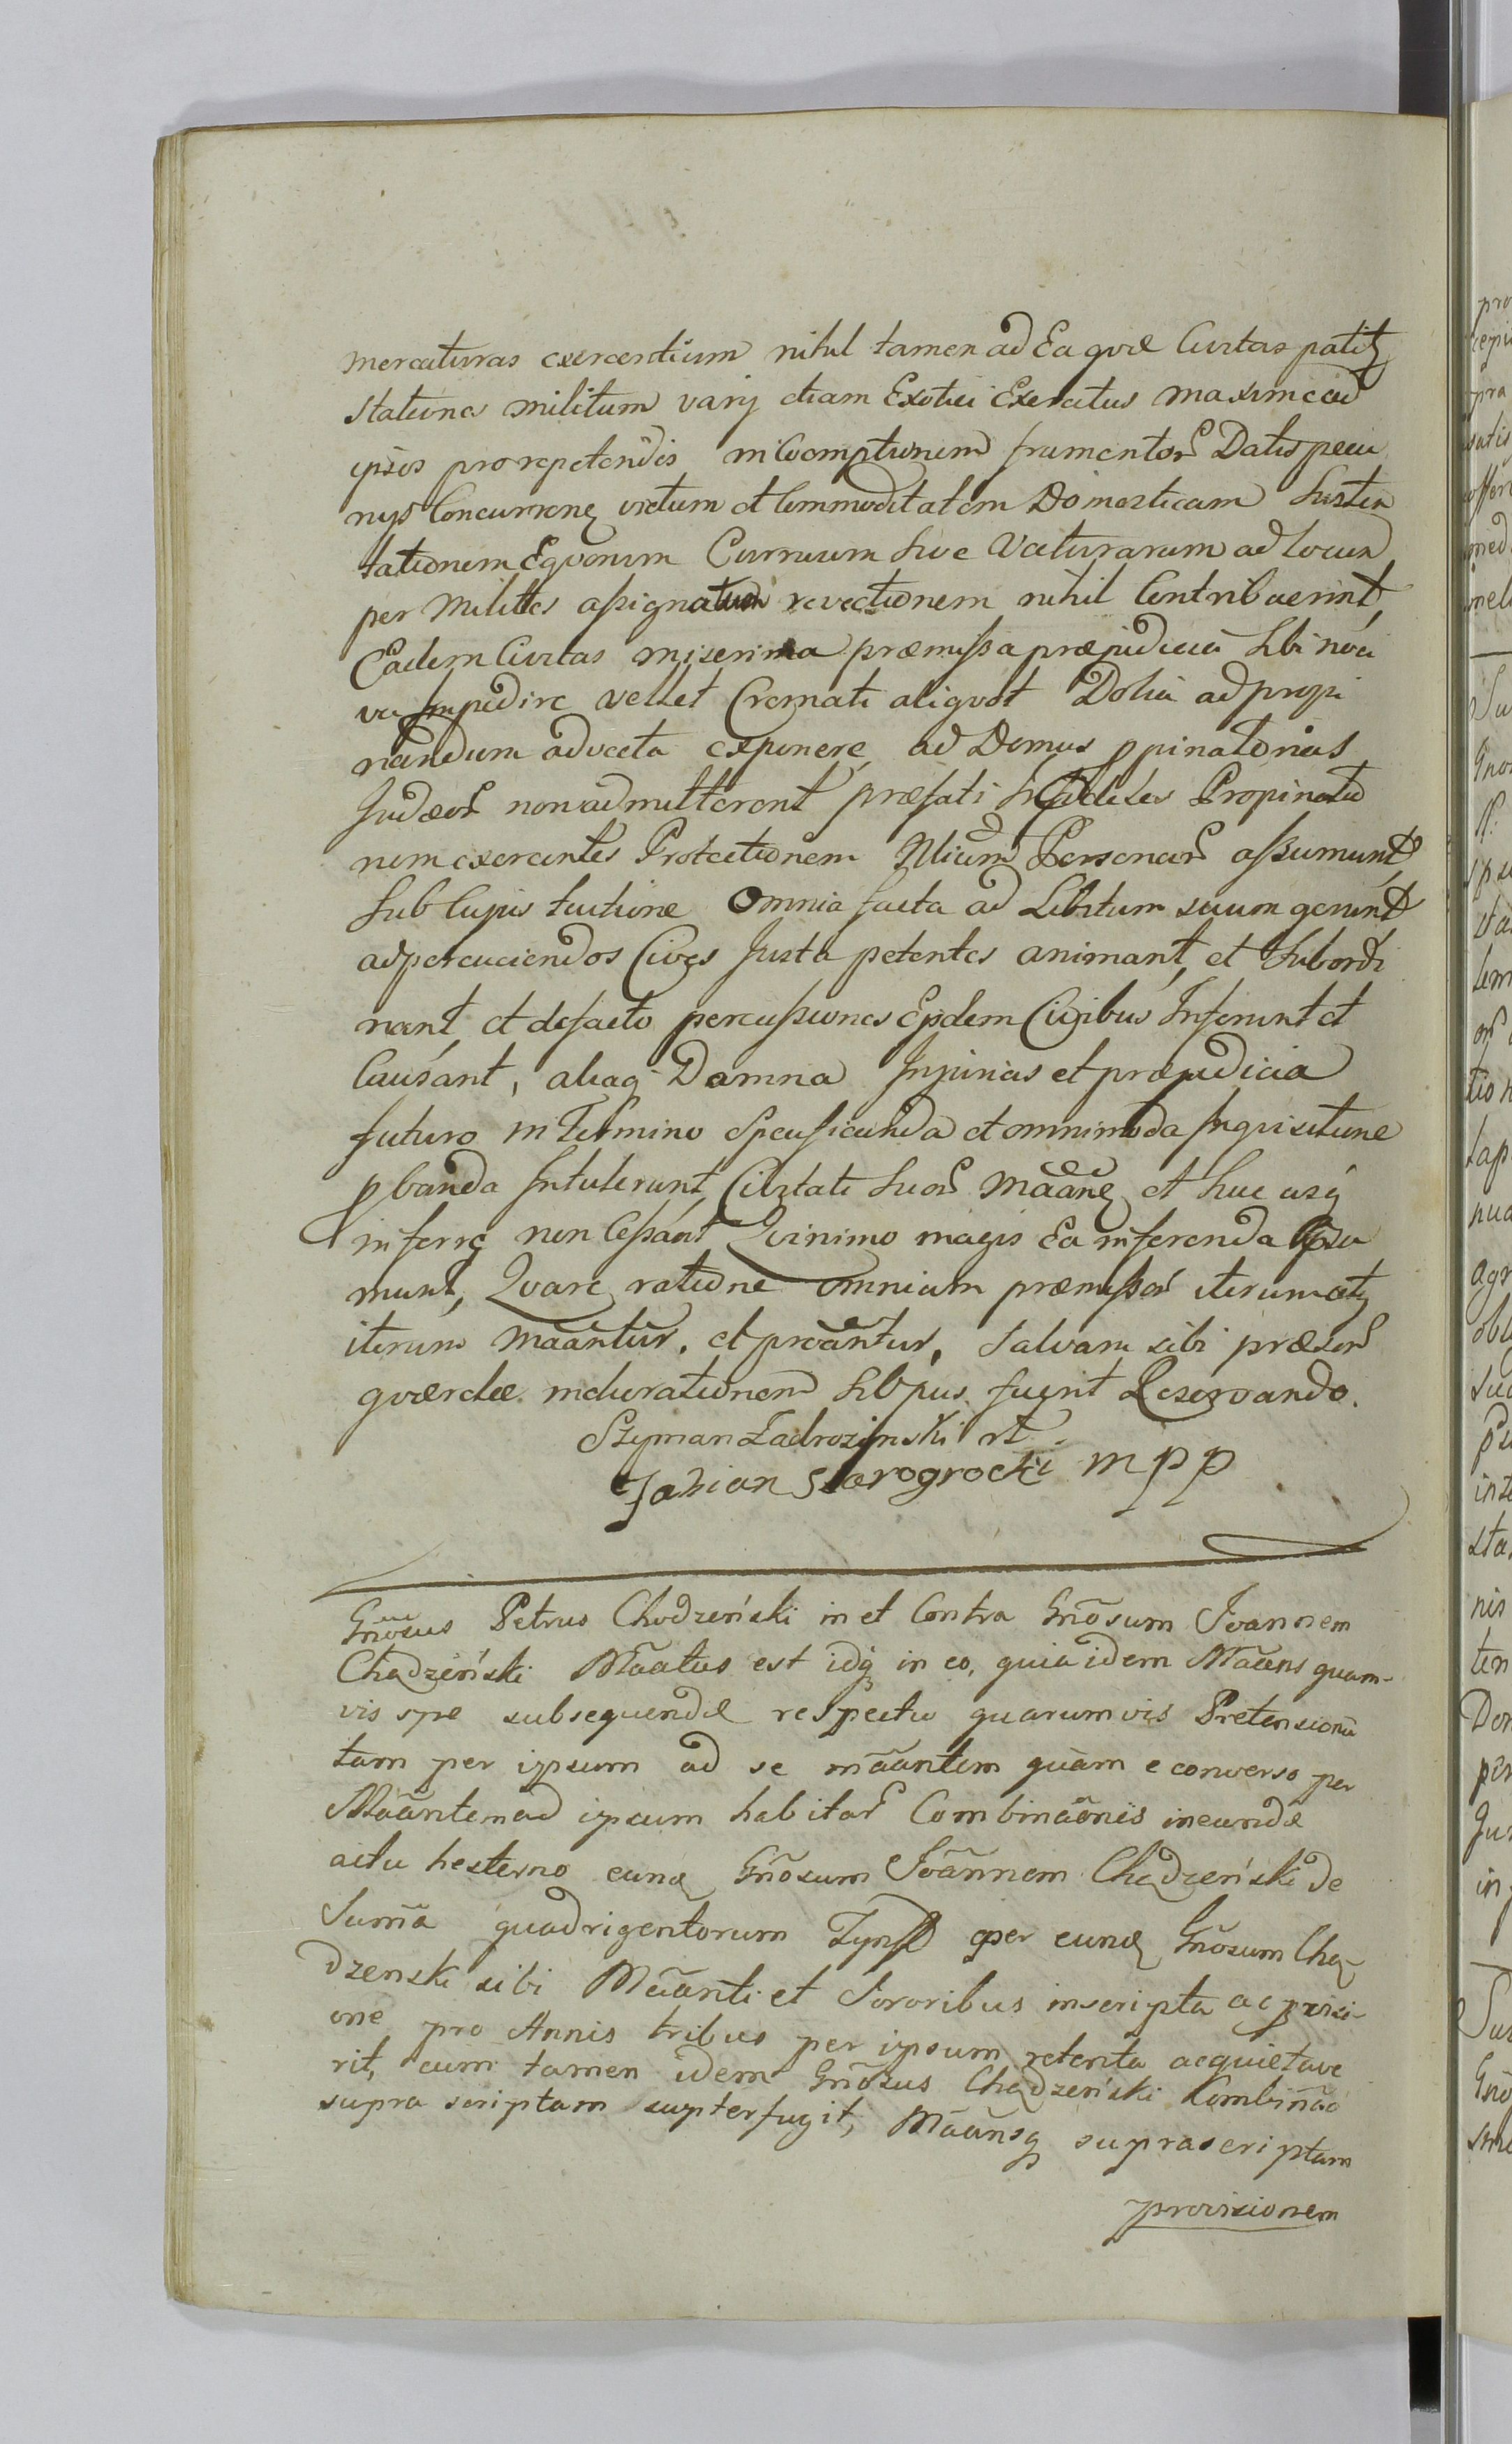 mercaturas exercentium nihil tamen ad Ea quæ Civitas patitz
stationes militum varij etiam Exotici Exercitus maxime ad
ipsos pro repetendis in Coemptionem frumentor Datis pecu
nys Concurrenz victum et Commoditatem Domesticam Susten
tationem Eqvorum Curruum sive Vecturarum ad locum
per Milittes assignatum revectionem nihil Contribuerint,
Eadem Civitas miserima præmissa præjudicia Sibi nóci
va Impedire vellet Cremati aliqvot Dolia ad propi
nandum advecta exponere, ad Domus ppinatorias
Judæor non admitterent præfati Infideles Propinatio
nem exercentes Protectionem Altium Personar assumunt,
Sub Cujus tuitione Omnia facta ad Libitum suum gerunt
ad percuciendos Cives Justa petentes animant, et Subordi
nant, et defacto percussiones Ejsdem Civibus Inferunt et
Causant, aliaq Damna Injurias et præjudicia
futuro in Termino Specificanda et omnimoda Inqvisitione
pbanda Intulerunt, Civitati Suor Mãane, et huc usq
inferre non Cessant Qvinimo magis Ea inferenda assu
munt, Qvare ratione omnium præmissor iterum atq
iterum Mãantur, et prõantur, Salvam sibi præsen
qværelæ meliorationem Si opus fuerit Reservando.
Szyman Zadrozinski rt
Fabian Starogrocki mpp
Gnõsus Petrus Chodzeński in et Contra Gnõsum Joannem
Chądzeński Mãatus est idq in eo, quia idem Mãans quam-
vis spe subsequendæ respectu quarumvis Pretensionũ
tam per ipsum ad se mãantem quàm e converso per
Mãantem ad ipsum habitar Combinãonis ineundæ
actu hesterno eundz Gnõsum Joãnnem Chądzeński de
Sumã quadrigentorum Tynff per eundz Gnõsum Chą
dzenski sibi Mãanti et Sororibus inscripta ac provisi-
one pro Annis tribus per ipsum retenta acquietave
rit, cum tamen idem Gnõsus Chądzeński Kombinão
supra scriptam supterfugit, Mãansq suprascriptam
provisionem